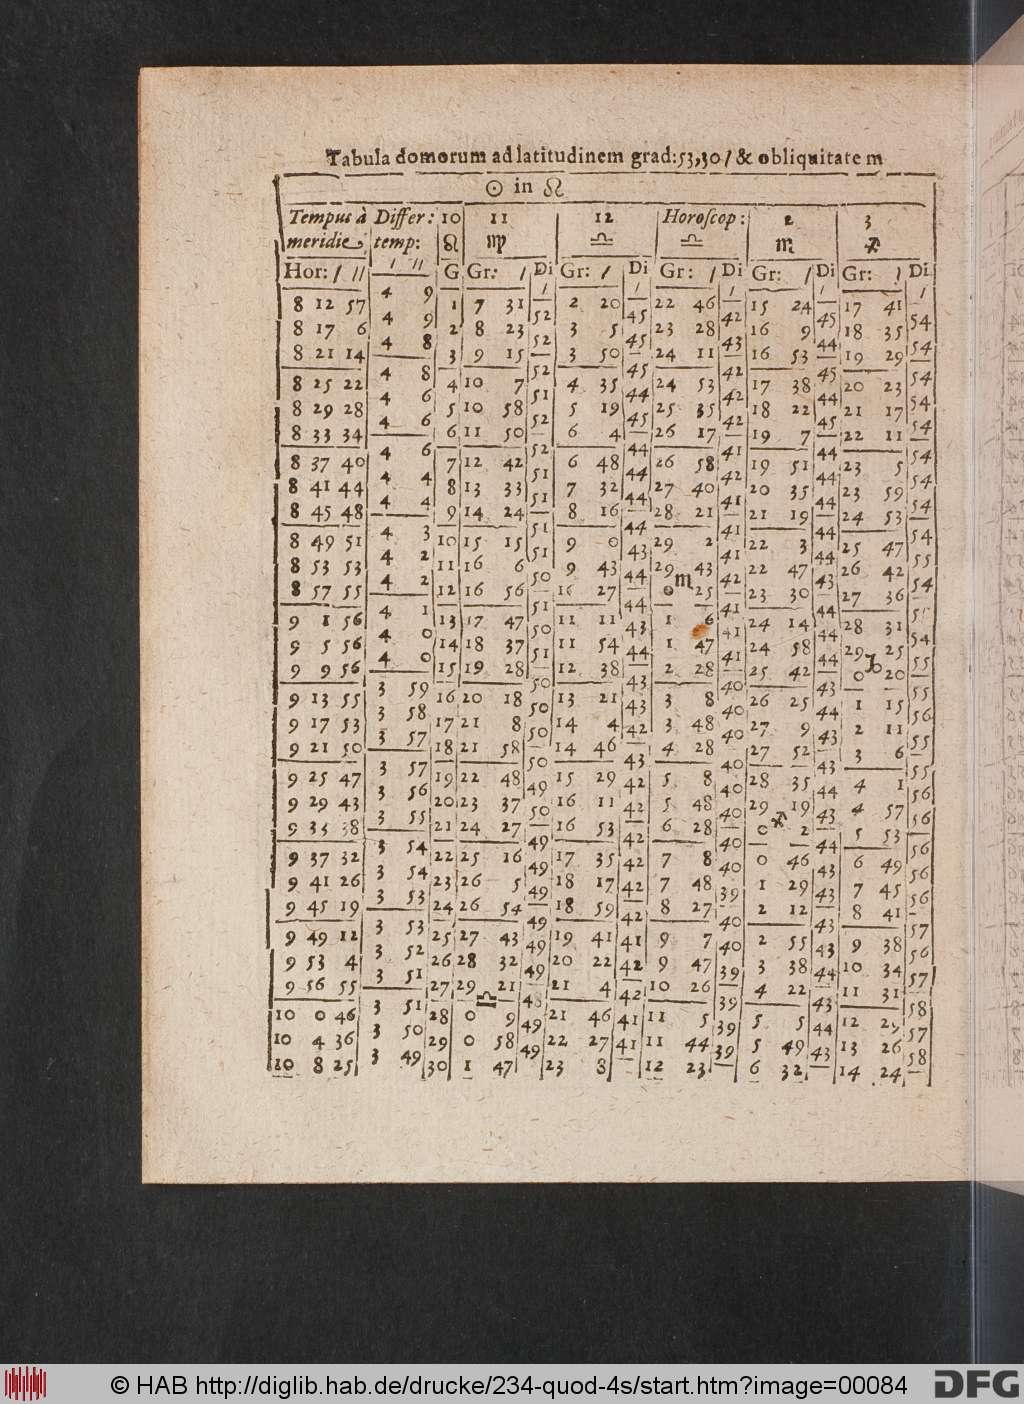 Tabula domorum ad latitudinem grad: 53,30 / & obliquitate m
☉ in ♌
Tempus à Differ: 10 11 12 Horoſcop: 2 3
meridie, temp: ♌ ♍ ♎ ♎ ♏ ♐
Hor: / // / // G Gr: / Di Gr: / Di Gr: / Di Gr: / Di Gr: / Di
/ / / / /
8 12 57 4 9 1 7 31 52 2 20 45 22 46 42 15 24 45 17 41 54
8 17 6 4 9 2 8 23 52 3 5 45 23 28 43 16 9 44 18 35 54
8 21 14 4 8 3 9 15 52 3 50 45 24 11 42 16 53 45 19 29 54
8 25 22 4 8 4 10 7 51 4 35 44 24 53 42 17 38 44 20 23 54
8 29 28 4 6 5 10 58 52 5 19 45 25 35 42 18 22 45 21 17 54
8 33 34 4 6 6 11 50 52 6 4 44 26 17 41 19 7 44 22 11 54
8 37 40 4 6 7 12 42 51 6 48 44 26 58 42 19 51 44 23 5 54
8 41 44 4 4 8 13 33 51 7 32 44 27 40 41 20 35 44 23 59 54
8 45 48 4 4 9 14 24 51 8 16 44 28 21 41 21 19 44 24 53 54
8 49 51 4 3 10 15 15 51 9 0 43 29 2 41 22 3 44 25 47 55
8 53 53 4 2 11 16 6 50 9 43 44 29 43 42 22 47 43 26 42 54
♏
8 57 55 4 2 12 16 56 51 10 27 44 0 25 41 23 30 44 27 36
9 1 56 4 1 13 17 47 50 11 11 43 1 6 41 24 14 44 28 31 54
9 5 56 4 0 14 18 37 51 11 54 44 1 47 41 24 58 44 29 25 55
♑
9 9 56 4 0 15 19 28 50 12 38 43 2 28 40 25 42 43 0 20 55
9 13 55 3 59 16 20 18 50 13 21 43 3 8 40 26 25 44 1 15 56
9 17 53 3 58 17 21 8 50 14 4 42 3 48 40 27 9 43 2 11 55
9 21 50 3 57 18 21 58 50 14 46 43 4 28 40 27 52 43 3 6 55
9 25 47 3 57 19 22 48 49 15 29 42 5 8 40 28 35 44 4 1 56
9 29 43 3 56 20 23 37 50 16 11 42 5 48 40 29 19 43 4 57 56
♐
9 33 38 3 55 21 24 27 49 16 53 42 6 28 40 0 2 44 5 53 56
9 37 32 3 54 22 25 16 49 17 35 42 7 8 40 0 46 43 6 49 56
9 41 26 3 54 23 26 5 49 18 17 42 7 48 39 1 29 43 7 45 56
9 45 19 3 53 24 26 54 49 18 59 42 8 27 40 2 12 43 8 41 57
9 49 12 3 53 25 27 43 49 19 41 41 9 7 40 2 55 43 9 38 56
9 53 4 3 52 26 28 32 49 20 22 42 9 47 39 3 38 44 10 34 57
9 56 55 3 51 27 29 21 48 21 4 42 10 26 39 4 22 43 11 31 58
♎
10 0 46 3 51 28 0 9 49 21 46 41 11 5 39 5 5 44 12 29 57
10 4 36 3 50 29 0 58 49 22 27 41 11 44 39 5 49 43 13 26 58
10 8 25 3 49 30 1 47 23 8 12 23 6 32 14 24
© HAB http://diglib.hab.de/drucke/234-quod-4s/start.htm?image=00084 DFG